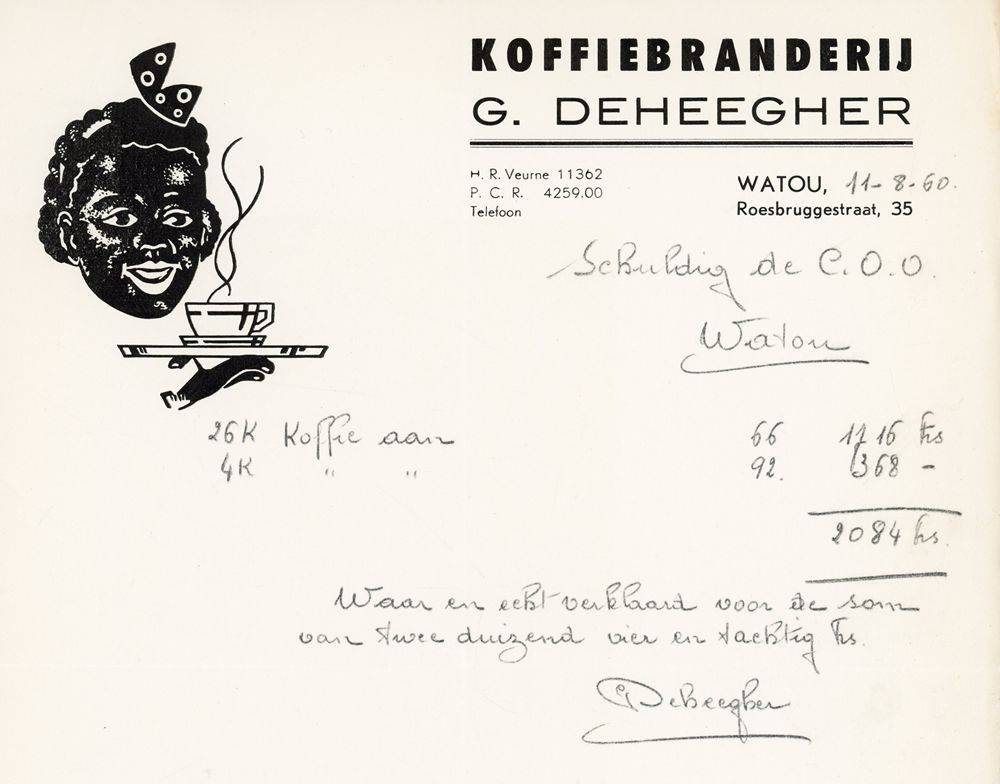 KOFFIEBRANDERIJ
G. DEHEEGHER
H. R. Veurne 11362
P. C. R. 4259.00
Telefoon
WATOU, 11-8-60.
Roesbruggestraat, 35
Schuldig de C.O.O.
Watou
26K Koffie aan 66 1716 frs
4K " " 92. 368 -
2084 frs.
Waar en echt verklaard voor de som
van twee duizend vier en tachtig frs.
GDeheegher